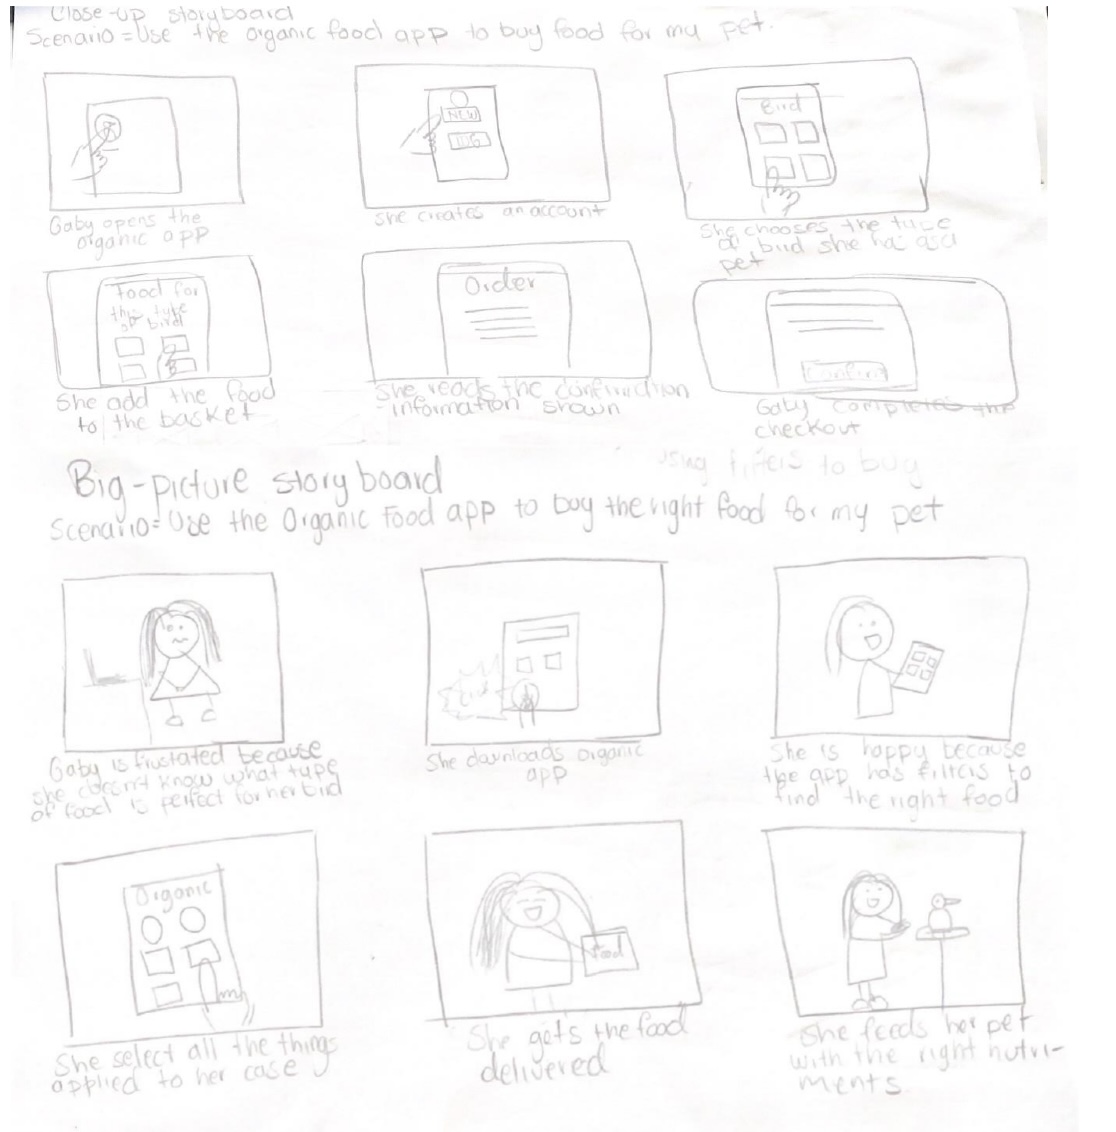 Close-up storyboard
Scenario = Use the organic food app to buy food for my pet.
Gaby opens the
organic app
NEW
she creates an account
Bird
She chooses the type
of bird she has as a
pet
Food for
this type
of bird
She add the food
to the basket
Order
She reads the confirmation
information shown
Confirm
Gaby completes the
checkout
using filters to buy
Big-picture storyboard
Scenario = Use the Organic Food app to buy the right food for my pet
Gaby is frustated because
she doesn't know what type
of food is perfect for her bird
She downloads organic
app
She is happy because
the app has filters to
find the right food
Organic
She select all the things
applied to her case
Food
She gets the food
delivered
She feeds her pet
with the right nutri-
ments.